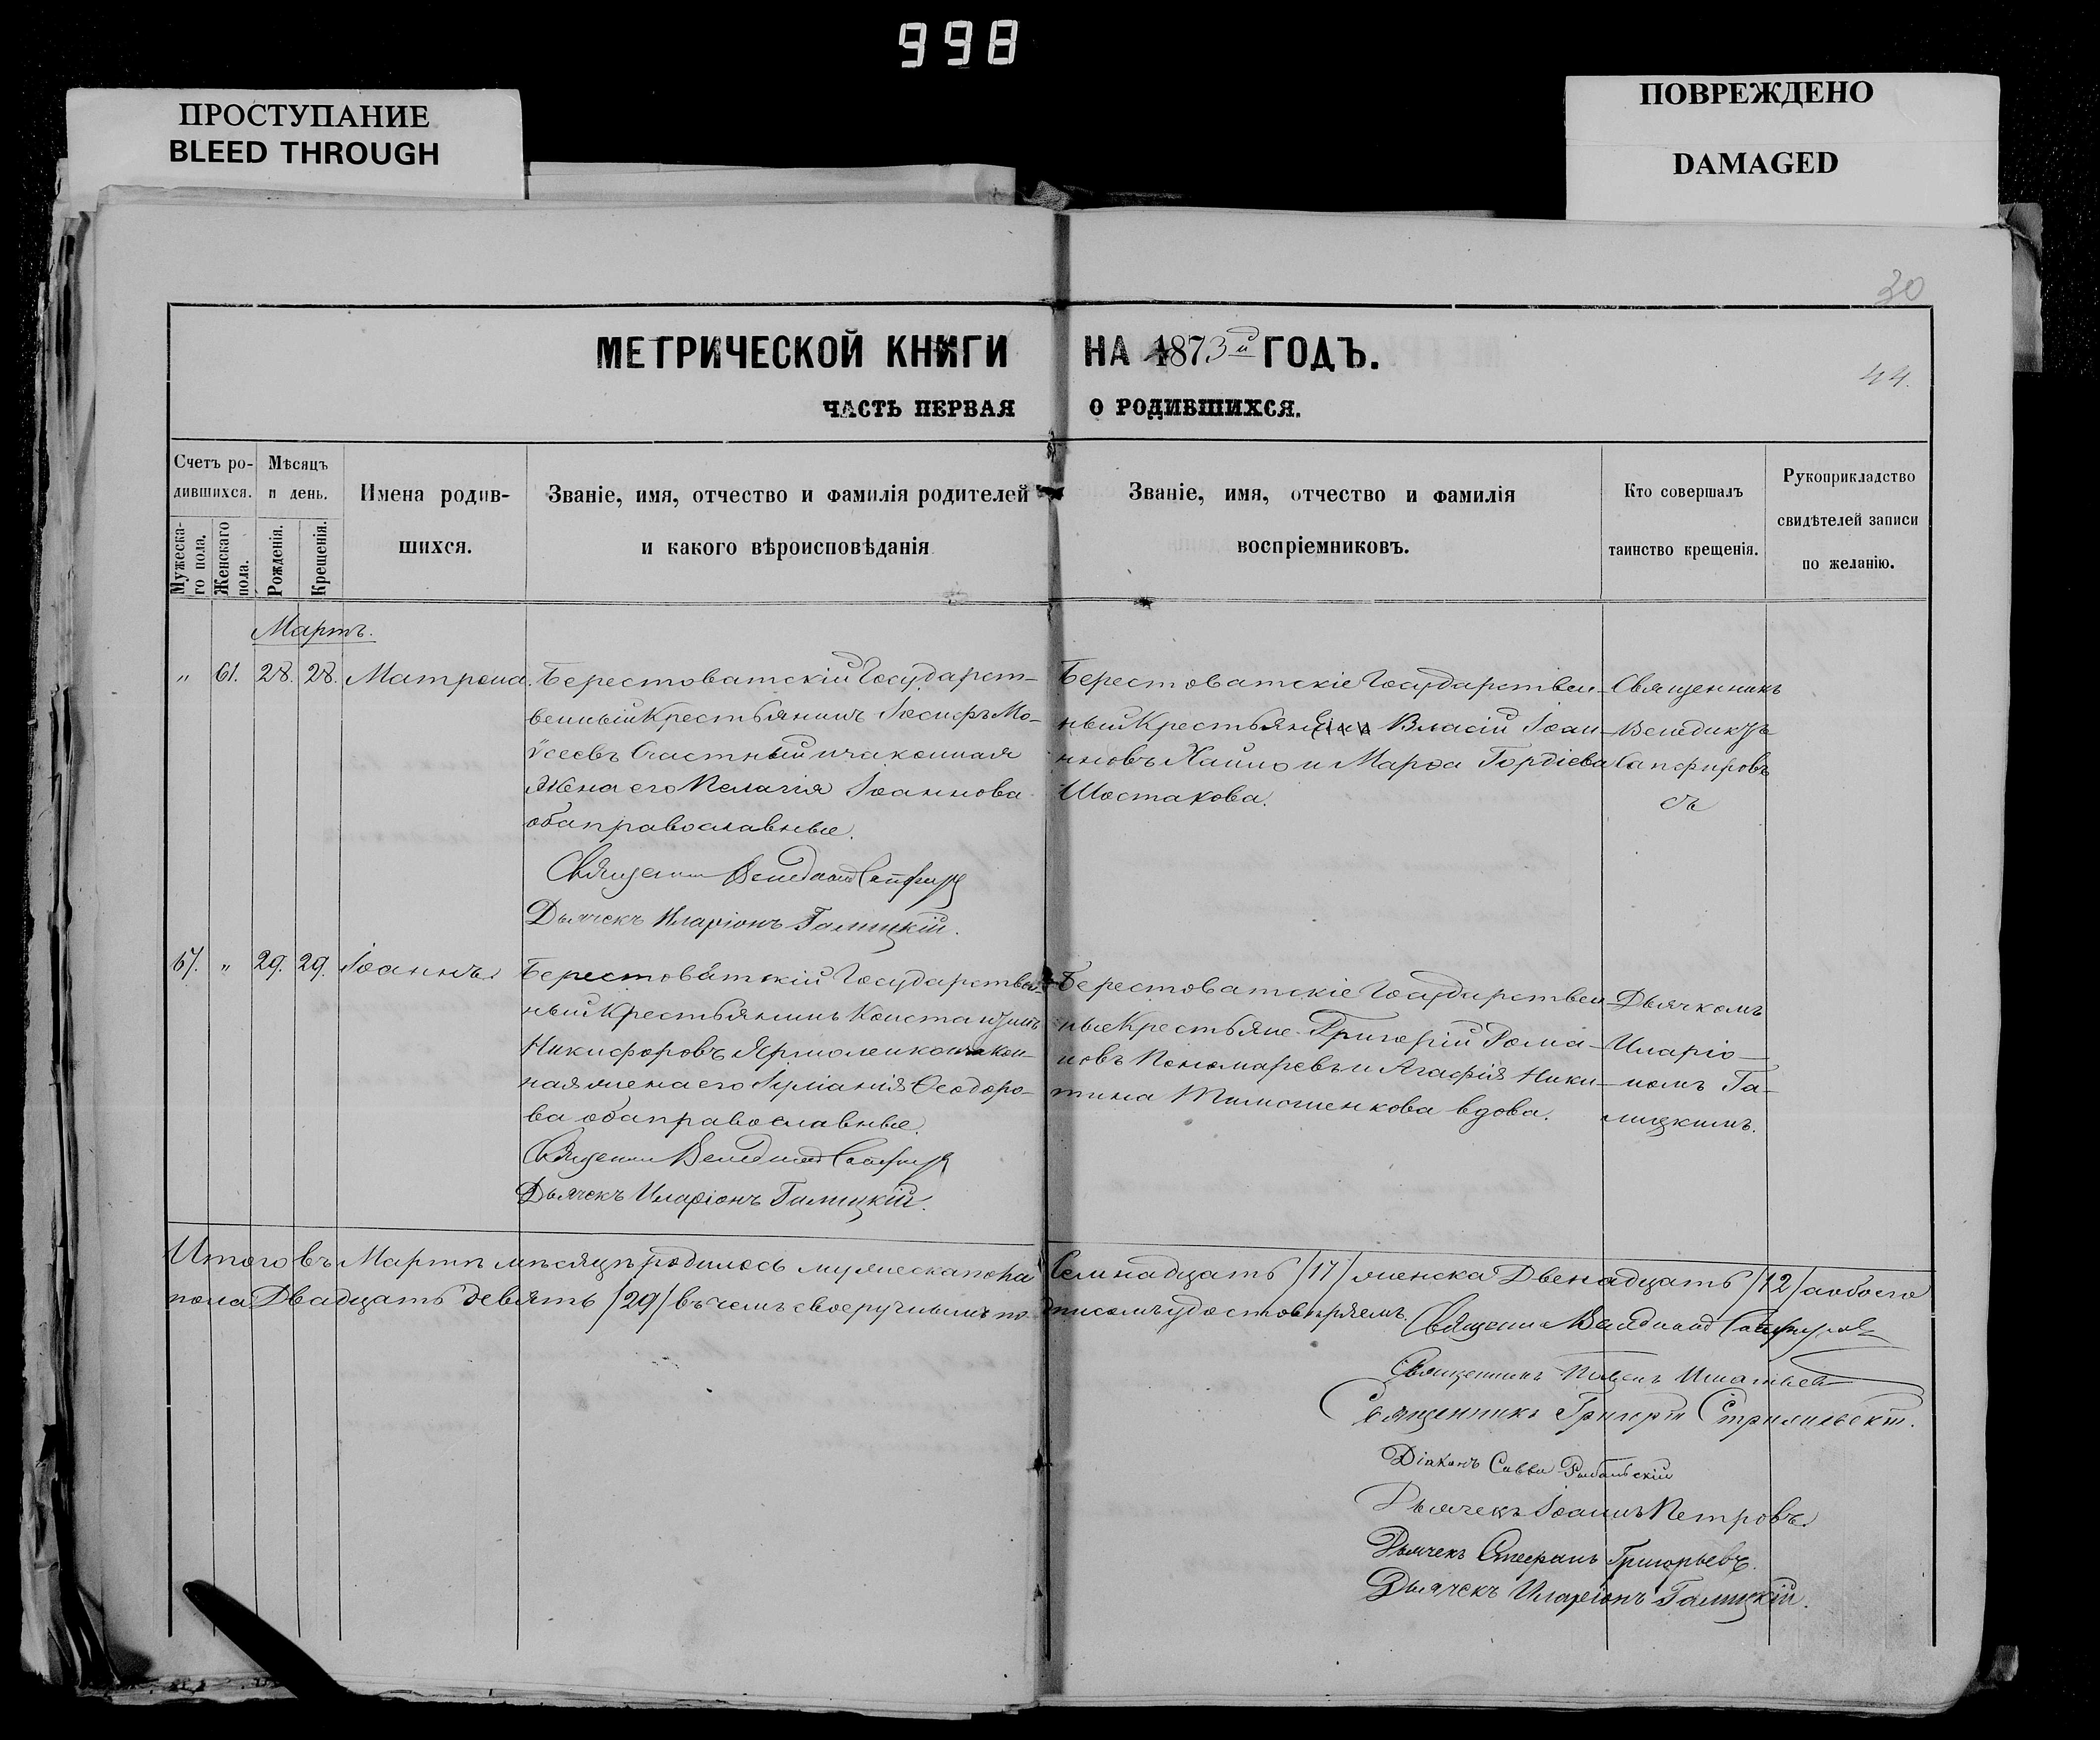 998
ПРОСТУПАНИЕ
BLEED THROUGH
ПОВРЕЖДЕНО
DAMAGED
30
МЕТРИЧЕСКОЙ КНИГИ НА 1873й ГОДЪ.
44.
ЧАСТЬ ПЕРВАЯ О РОДИВШИХСЯ.
Счетъ ро-
дившихся.
Мужеска-
го пола.
Женскаго
пола.
Мѣсяцъ
и день.
Рожденія.
Крещенія.
Имена родив-
шихся.
Званіе, имя, отчество и фамилія родителей
и какого вѣроисповѣданія
Званіе, имя, отчество и фамилія
воспріемниковъ.
Кто совершалъ
таинство крещенія.
Рукоприкладство
свидѣтелей записи
по желанію.
Мартъ.
" 61. 28. 28. Матрона.
Берестоватскій Государст-
венный Крестьянинъ Іосифъ Мо-
ѵсеевъ Счастный и законная
жена его Пелагія Іоаннова
оба православные.
Священникъ Венедиктъ Сапфировъ
Дьячекъ Иларіонъ Галицкій.
Берестоватскіе Государствен-
ный Крестьяне Власій Іоан-
новъ Хайло и Марѳа Гордіева
Шостакова.
Священникъ
Венедиктъ
Сапфировъ
съ
67. " 29. 29. Іоаннъ.
Берестоватскій Государствен-
ный Крестьянинъ Константинъ
Никифоровъ Ярмоленко и закон-
ная жена его Іуліанія Ѳеодоро-
ва оба православные.
Священникъ Венедиктъ Сапфировъ
Дьячекъ Иларіонъ Галицкій.
Берестоватскіе Государствен-
ные Крестьяне Григорій Рома-
новъ Пономаревъ и Агафія Ники-
тина Тимошенкова вдова.
Дьячкомъ
Иларіо-
номъ Га-
лицкимъ.
Итого въ Мартѣ мѣсяцѣ родилось мужеска пола Семнадцать /17/ женска Двенадцать /12/ а обоего
пола Двадцать девять /29/ въ чемъ своеручнымъ подписомъ удостовѣряемъ.
Священникъ Венедиктъ Сапфировъ
Священникъ
Священникъ Григорій
Діаконъ Савва
Дьячекъ Іоаннъ Петровъ.
Дьячекъ Стефанъ Григорьевъ.
Дьячекъ Иларіонъ Галицкій.